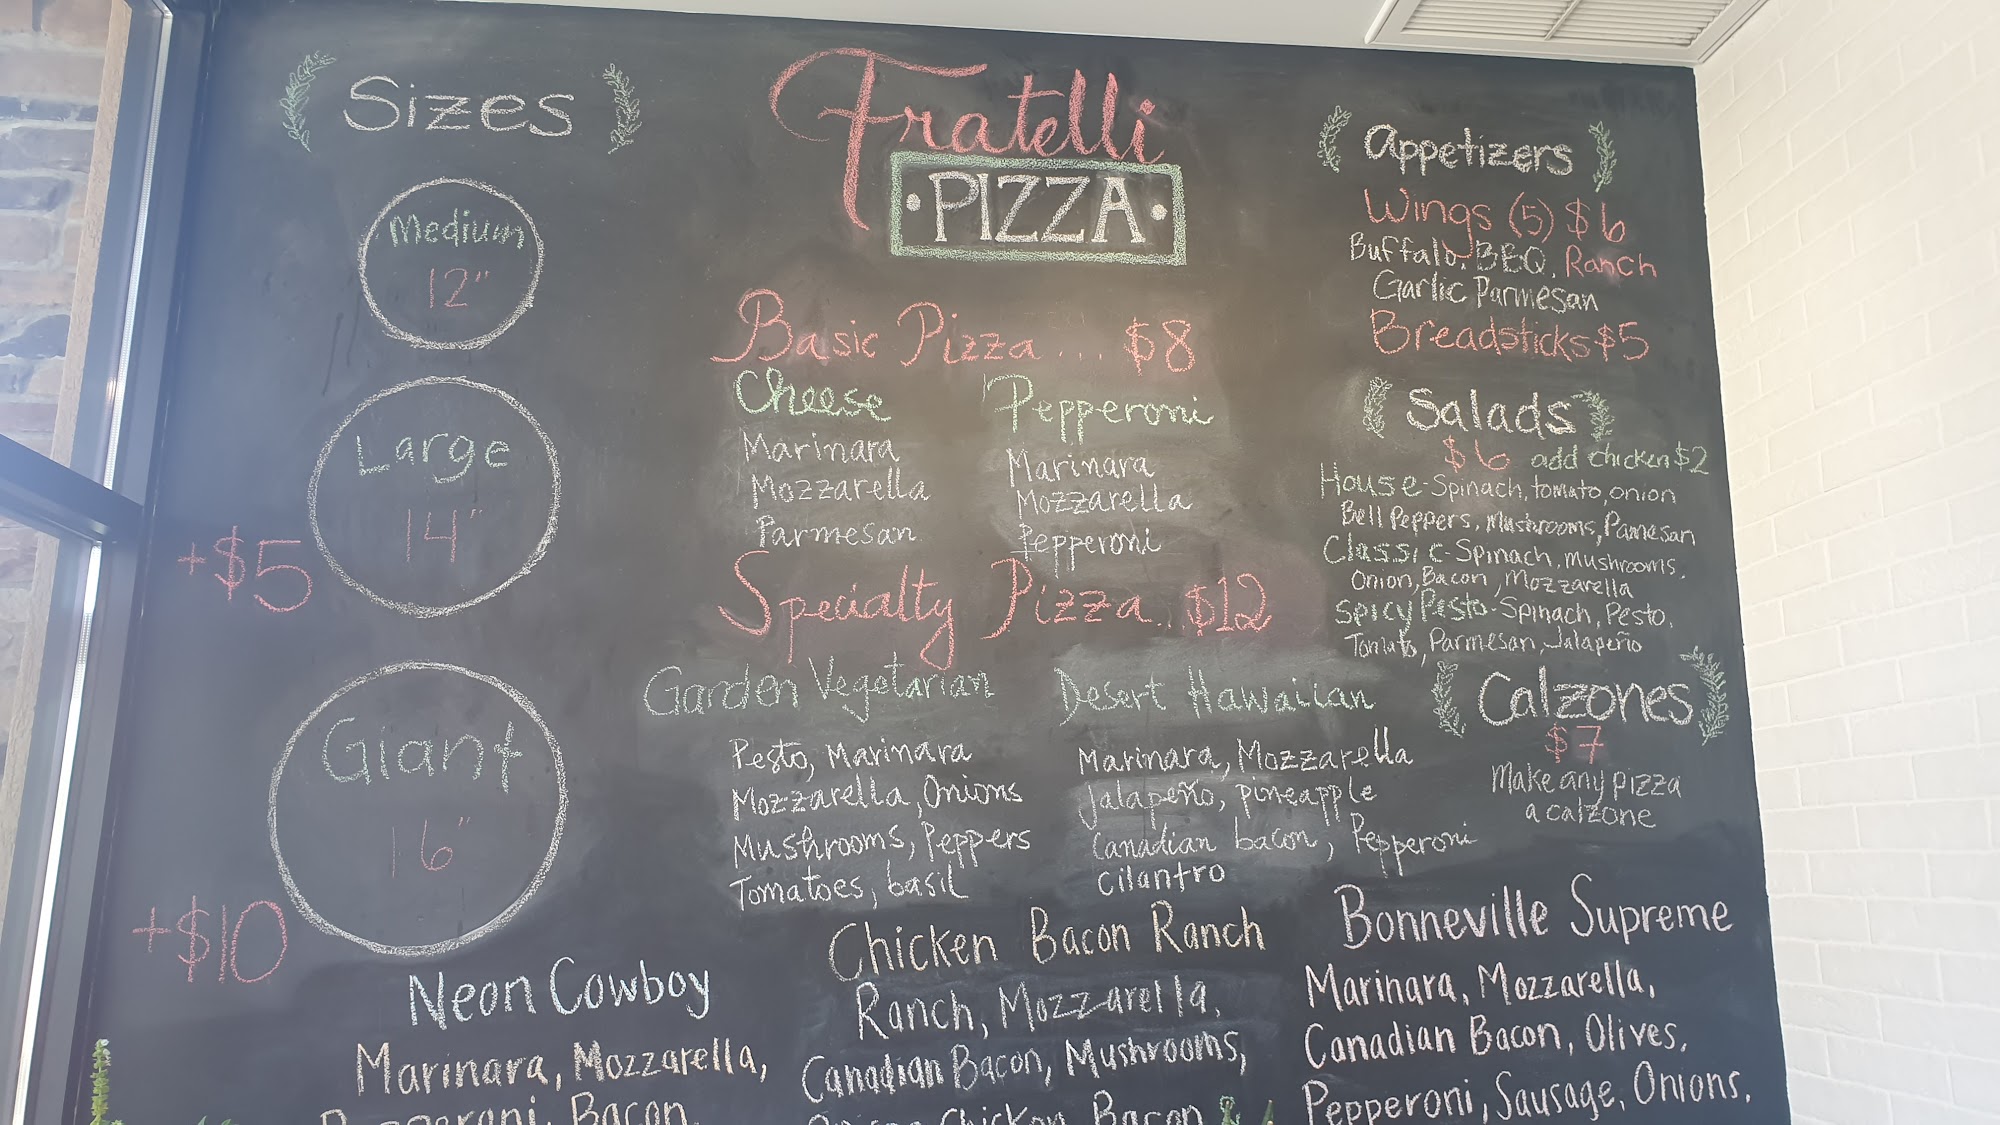 Sizes
Medium
12"
Large
14"
+$5
Giant
16"
+$10
Fratelli
·PIZZA·
Basic Pizza ... $8
Cheese
Marinara
Mozzarella
Parmesan
Pepperoni
Marinara
Mozzarella
Pepperoni
Specialty Pizza.. $12
Garden Vegetarian
Pesto, Marinara
Mozzarella, Onions
Mushrooms, Peppers
Tomatoes, basil
Desert Hawaiian
Marinara, Mozzarella
Jalapeño, pineapple
Canadian bacon, Pepperoni
cilantro
Appetizers
Wings (5) $6
Buffalo. BBQ. Ranch
Garlic Parmesan
Breadsticks $5
Salads
$6 add chicken $2
House - Spinach, tomato, onion
Bell Peppers, Mushrooms, Pamesan
Classic - Spinach, mushrooms.
Onion, Bacon, Mozzarella
Spicy Pesto - Spinach, Pesto,
Tomato, Parmesan, Jalapeño
Calzones
$7
Make any pizza
a calzone
Neon Cowboy
Marinara, Mozzarella,
Pepperoni, Bacon,
Chicken Bacon Ranch
Ranch, Mozzarella,
Canadian Bacon, Mushrooms,
Chicken, Bacon
Bonneville Supreme
Marinara, Mozzarella,
Canadian Bacon, Olives,
Pepperoni, Sausage, Onions,